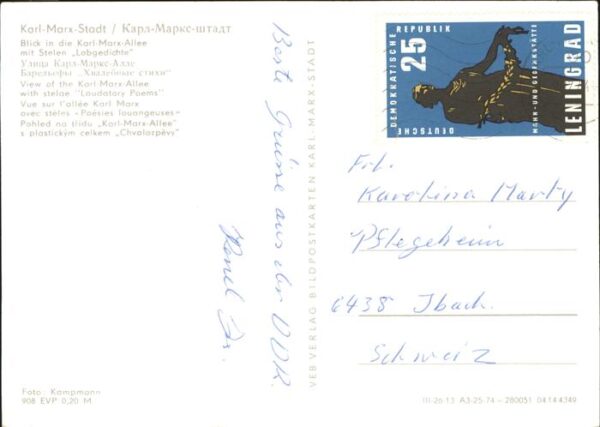 Karl-Marx-Stadt / Карл-Маркс-штадт
Blick in die Karl-Marx-Allee
mit Stelen „Lobgedichte"
Улица Карл-Маркс-Алле
Барельефы „Хвалебные стихи"
View of the Karl Marx-Allee
with stelae "Laudatory Poems"
Vue sur l'allée Karl Marx
avec stèles «Poésies louangeuses»
Pohled na třídu „Karl-Marx-Allee"
s plastickým celkem „Chvalozpěvy"
Beste Grüsse aus der DDR.
Foto: Kampmann
908 EVP 0,20 M
VEB VERLAG BILDPOSTKARTEN KARL-MARX-STADT
DEUTSCHE DEMOKRATISCHE REPUBLIK
25
MAHN- UND GEDENKSTÄTTE
LENINGRAD
Frl.
Karolina Marty
Pflegeheim
6438 Ibach
Schweiz
III-26-13 A3-25-74 – 280051 04 14 4349